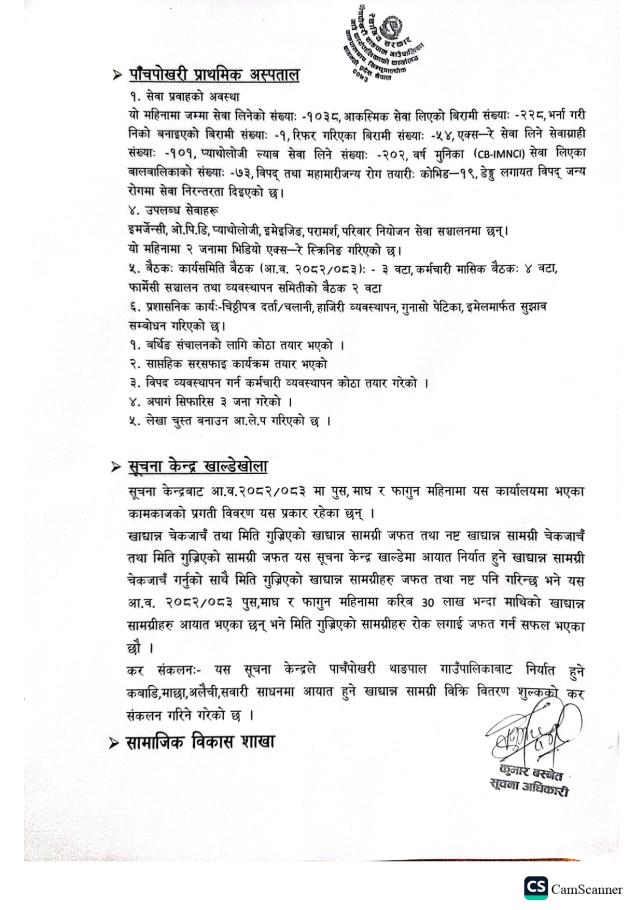 ➤ पाँचपोखरी प्राथमिक अस्पताल
१. सेवा प्रवाहको अवस्था
यो महिनामा जम्मा सेवा लिनेको संख्याः -१०३८, आकस्मिक सेवा लिएको बिरामी संख्याः -२२८, भर्ना गरी
निको बनाइएको बिरामी संख्याः -१, रिफर गरिएका बिरामी संख्याः -५४, एक्स–रे सेवा लिने सेवाग्राही
संख्याः -१०१, प्याथोलोजी ल्याब सेवा लिने संख्याः -२०२, वर्ष मुनिका (CB-IMNCI) सेवा लिएका
बालबालिकाको संख्याः -७३, विपद् तथा महामारीजन्य रोग तयारीः कोभिड–१९, डेङ्गु लगायत विपद् जन्य
रोगमा सेवा निरन्तरता दिइएको छ।
४. उपलब्ध सेवाहरू
इमर्जेन्सी, ओ.पि.डि, प्याथोलोजी, इमेइजिङ, परामर्श, परिवार नियोजन सेवा सञ्चालनमा छन्।
यो महिनामा २ जनामा भिडियो एक्स–रे स्क्रिनिङ गरिएको छ।
५. बैठकः कार्यसमिति बैठक (आ.व. २०८२/०८३)ः - ३ वटा, कर्मचारी मासिक बैठकः ४ वटा,
फार्मेसी सञ्चालन तथा व्यवस्थापन समितीको बैठक २ वटा
६. प्रशासनिक कार्यः-चिठ्ठीपत्र दर्ता/चलानी, हाजिरी व्यवस्थापन, गुनासो पेटिका, इमेलमार्फत सुझाव
सम्बोधन गरिएको छ।
१. बर्थिङ संचालनको लागि कोठा तयार भएको ।
२. साप्तहिक सरसफाइ कार्यक्रम तयार भएको
३. विपद व्यवस्थापन गर्न कर्मचारी व्यवस्थापन कोठा तयार गरेको ।
४. अपागं सिफारिस ३ जना गरेको ।
५. लेखा चुस्त बनाउन आ.ले.प गरिएको छ ।
➤ सूचना केन्द्र खाल्डेखोला
सूचना केन्द्रबाट आ.व.२०८२/०८३ मा पुस, माघ र फागुन महिनामा यस कार्यालयमा भएका
कामकाजको प्रगती विवरण यस प्रकार रहेका छन् ।
खाद्यान्न चेकजाचँ तथा मिति गुज्रिएको खाद्यान्न सामग्री जफत तथा नष्ट खाद्यान्न सामग्री चेकजाचँ
तथा मिति गुज्रिएको सामग्री जफत यस सूचना केन्द्र खाल्डेमा आयात निर्यात हुने खाद्यान्न सामग्री
चेकजाचँ गर्नुको साथै मिति गुज्रिएको खाद्यान्न सामग्रीहरु जफत तथा नष्ट पनि गरिन्छ भने यस
आ.व. २०८२/०८३ पुस,माघ र फागुन महिनामा करिब 30 लाख भन्दा माथिको खाद्यान्न
सामग्रीहरु आयात भएका छन् भने मिति गुज्रिएको सामग्रीहरु रोक लगाई जफत गर्न सफल भएका
छौ ।
कर संकलनः- यस सूचना केन्द्रले पाचँपोखरी थाङपाल गाउँपालिकाबाट निर्यात हुने
कवाडि,माछा,अलैची,सवारी साधनमा आयात हुने खाद्यान्न सामग्री विक्रि वितरण शुल्कको कर
संकलन गरिने गरेको छ ।
➤ सामाजिक विकास शाखा
कुमार बस्नेत
सूचना अधिकारी
CS CamScanner